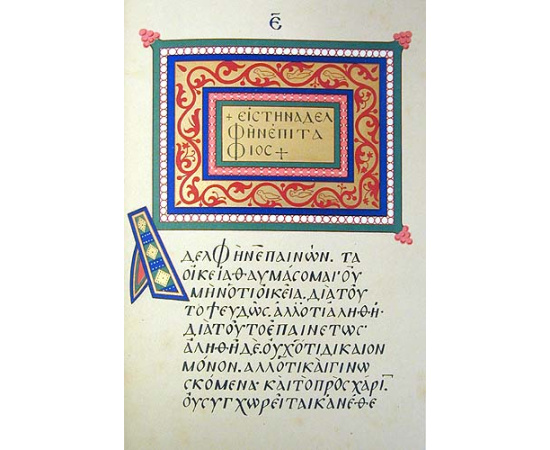 Ε̅
+ ΕΙΣΤΗΝΑΔΕΛ
ΦῊΝἘΠΙΤΆ
ΦΙΟΣ +
ΑΔΕΛΦῊΝἘΠΑΙΝΩ͂Ν. ΤᾺ
ΟΙΚΕΙ͂Α·Θ·ΑΥΜΆΣΟΜΑΙ· ΟΥ
ΜῊΝΟΤΙΟΙΚΕΙ͂Α. ΔΙΑΤΟΥ
ΤΟΨΕΥΔΩ͂Σ. ΑΛΛΌΤΙΑΛΗ·Θ·Η͂·
ΔΙΑΤΟΥΤΟἘΠΑΙΝΕΤΩ͂Σ·
ΑΛΗ·Θ·Η͂ΔΕ. ΟΥΧΌΤΙΔΙΚΑΙΟΝ
ΜΌΝΟΝ. ΑΛΛΌΤΙΚΑῚΓΙΝΩ
ΣΚΌΜΕΝΑ· ΚΑῚΤΟΠΡῸΣΧΆΡΙ̅
ΟΥΣΥΓΧΩΡΕΙ͂ΤΑΙΚᾺΝἘ·Θ·Ε